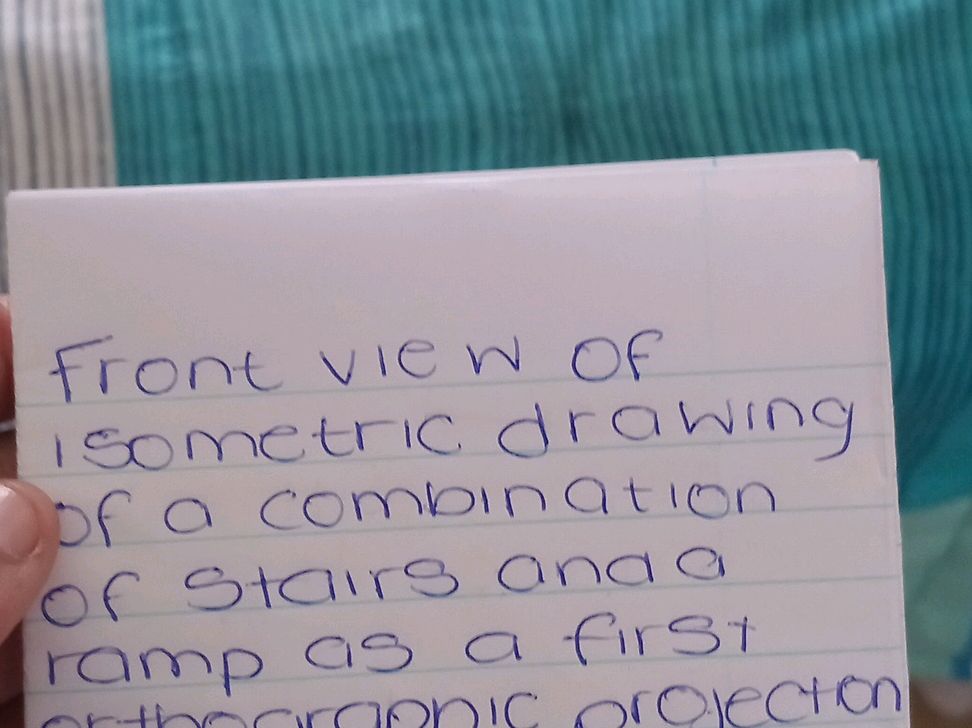 Front view of
isometric drawing
of a combination
of stairs and a
ramp as a first
orthographic projection